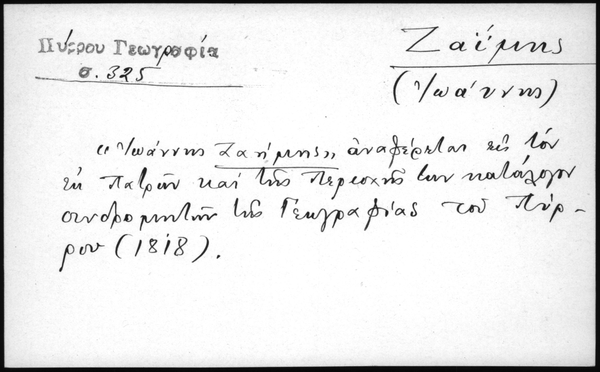 Πύρρου Γεωγραφία
σ. 325
Ζαΐμης
(Ἰωάννης)
«Ἰωάννης Ζαήμης» ἀναφέρεται εἰς τὸν
ἐκ Πατρῶν καὶ τῆς περιοχῆς των κατάλογον
συνδρομητῶν τῆς Γεωγραφίας τοῦ Πύρ-
ρου (1818).